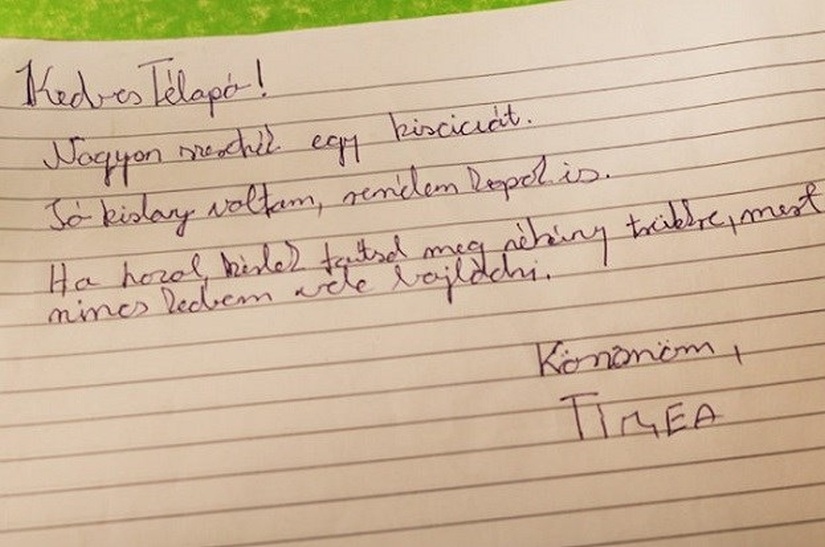 Kedves Télapó!
Nagyon szeretnék egy kiscicát.
Jó kislány voltam, remélem kapok is.
Ha hozol, kérlek tanítsd meg néhány trükkre, mert
nincs kedvem vele bajlódni.
Köszönöm,
TÍMEA